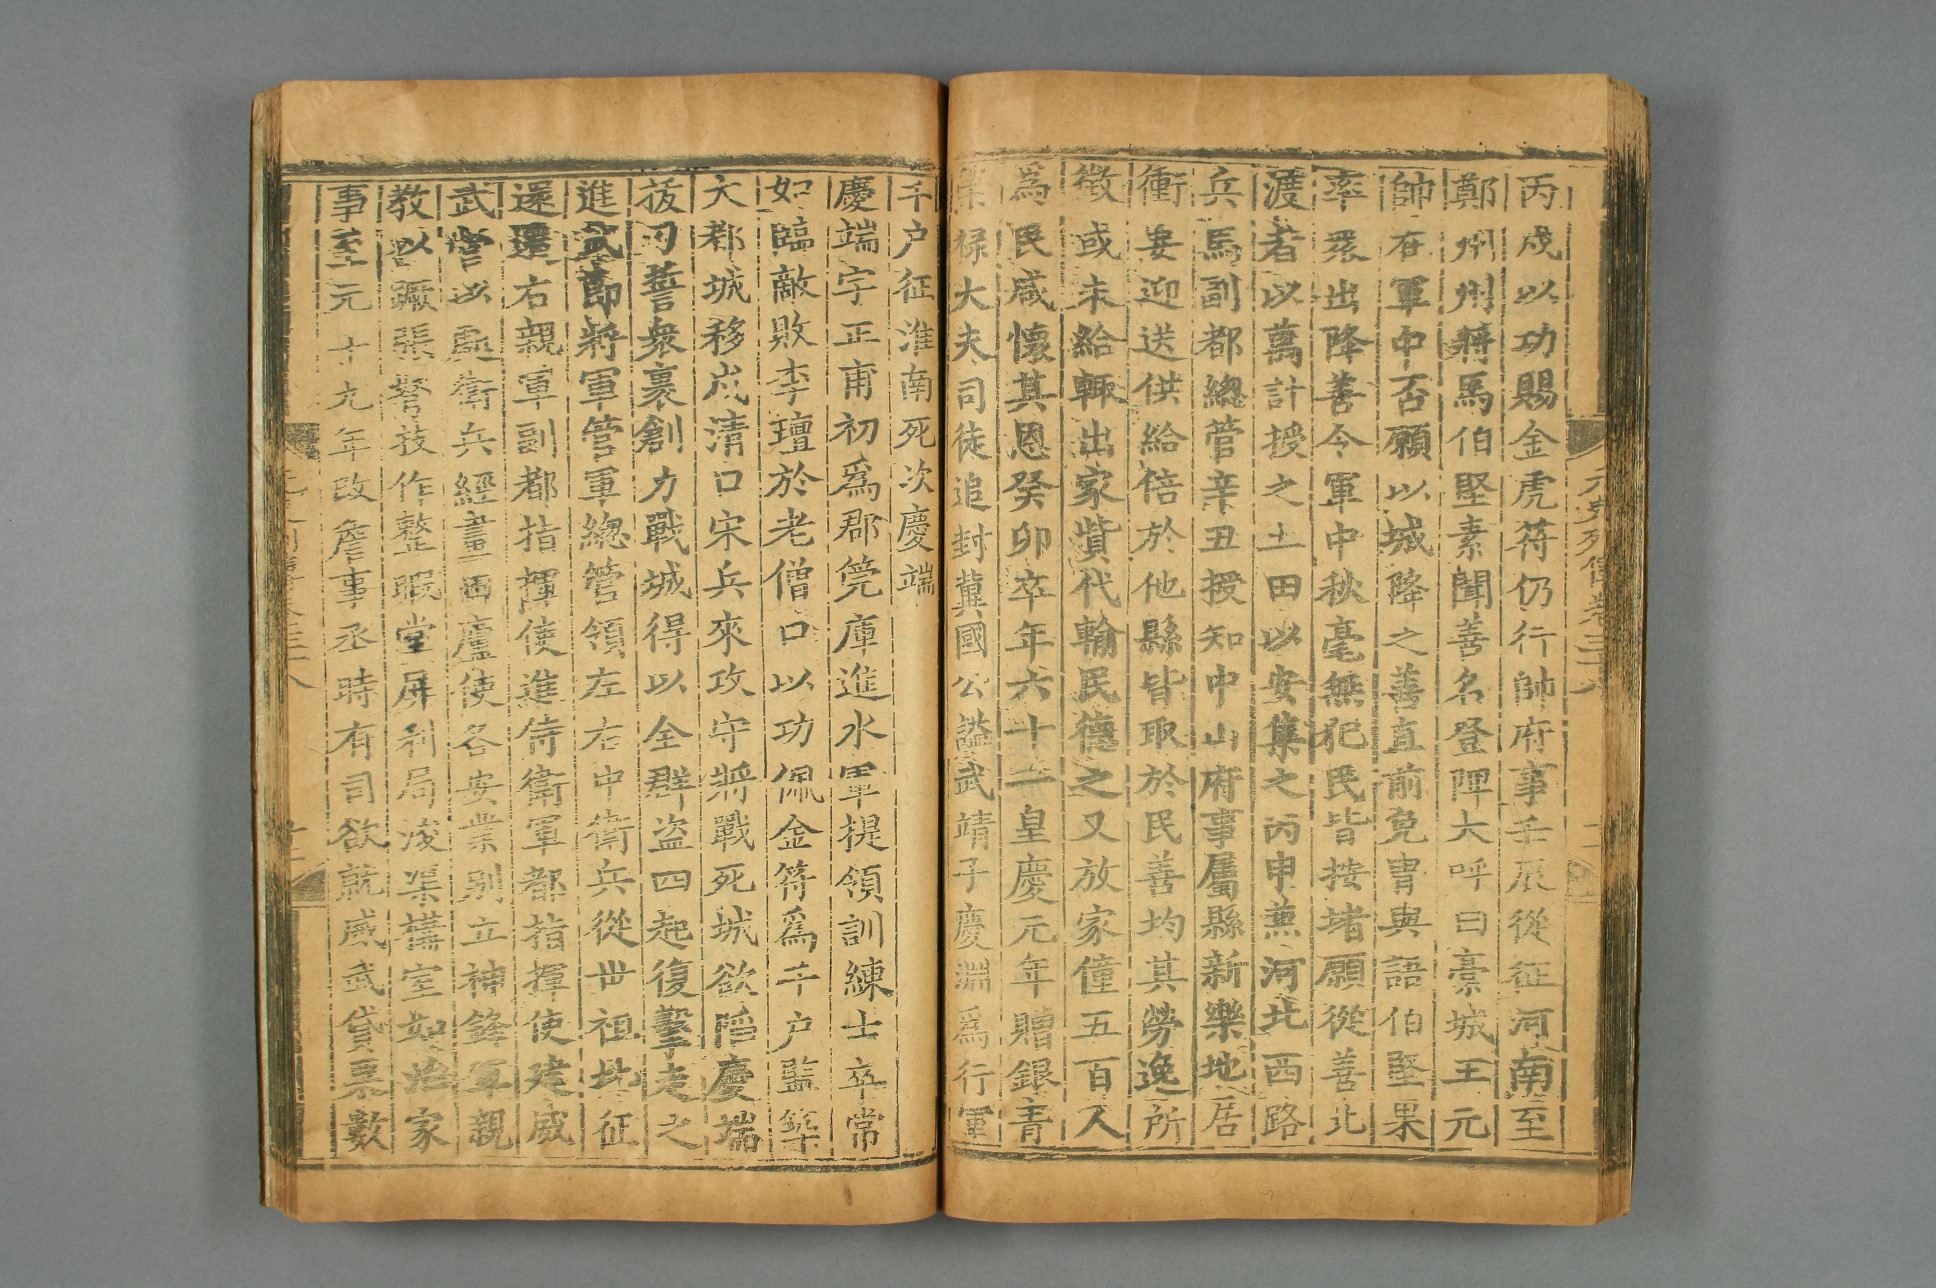 丙戌以功賜金虎符仍行帥府事壬辰從征河南至
鄭州州將馬伯堅素聞善名登陴大呼曰藁城王元
帥在軍中否願以城降之善直前免冑與語伯堅果
率衆出降善令軍中秋毫無犯民皆按堵願從善北
渡者以萬計授之土田以安集之丙申兼河北西路
兵馬副都總管辛丑授知中山府事屬縣新樂地居
衝要迎送供給倍於他縣皆取於民善均其勞逸所
徵或未給輙出家貲代輸民德之又放家僮五百人
爲民咸懷其恩癸卯卒年六十一皇慶元年贈銀青
榮禄大夫司徒追封冀國公謚武靖子慶淵爲行軍
千户征淮南死次慶端
慶端字正甫初爲郡筦庫進水軍提領訓練士卒常
如臨敵敗李璮於老僧口以功佩金符爲千户監築
大都城移戍清口宋兵來攻守將戰死城欲陷慶端
拔刃誓衆裹創力戰城得以全群盗四起復擊走之
進武節將軍管軍總管領左右中衛兵從世祖北征
還遷右親軍副都指揮使進侍衛軍都指揮使建威
武營以處衛兵經畫田廬使各安業别立神鋒軍親
教以蹶張弩技作整暇堂屏利局浚渠構室如治家
事至元十九年改詹事丞時有司欲就威武貸粟數